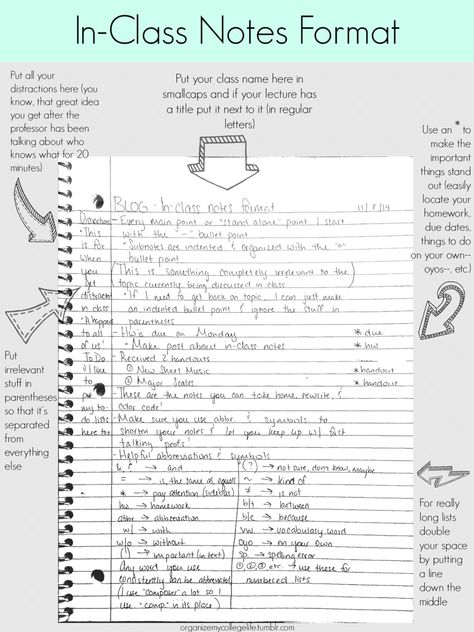 In-Class Notes Format
Put all your
distractions here (you
know, that great idea
you get after the
professor has been
talking about who
knows what for 20
minutes)
Put your class name here in
smallcaps and if your lecture has
a title put it next to it (in regular
letters)
Use an * to
make the
important
things stand
out (easily
locate your
homework,
due dates,
things to do
on your own--
oyos--, etc.)
Put
irrelevant
stuff in
parentheses
so that it's
separated
from
everything
else
For really
long lists
double
your space
by putting
a line
down the
middle
BLOG - In-class notes format 11/8/14
Distractions - Every main point or "stand alone" point I start
"This with the "-" bullet point
is for Subnotes are indented & organized with the "o"
when bullet point
you (This is something completely irrelevant to the
get topic currently being discussed in class
distracted If I need to get back on topic, I can just make
in class an indented bullet point & ignore the stuff in
parentheses
to all - HW's due on Monday * due
of us! Make post about in-class notes * hw
To Do - Received 2 handouts
I like ① New Sheet Music * handout
to ② Major Scales * handout
put - These are the notes you can take home, rewrite, &
my to- color code!
do lists - Make sure you use abbr. & symbols to
here too shorten your notes & let you keep up w/ fast
talking profs!
- Helpful abbreviations & symbols
& → and
= → is, the same as, equals
* → pay attention (sidebar)
hw → homework
abbr → abbreviation
w/ → with
w/o → without
(!) → important (in text)
Any word you use
consistently can be abbreviated
(I use "composer" a lot so I
use "comp." in its place)
(?) → not sure, don't know, maybe
~ → kind of
≠ → is not
b/t → between
b/c → because
vw → vocabulary word
oyo → on your own
sp → spelling error
①, ②, ③, etc. → use these for
numbered lists
organizemycollegelife.tumblr.com